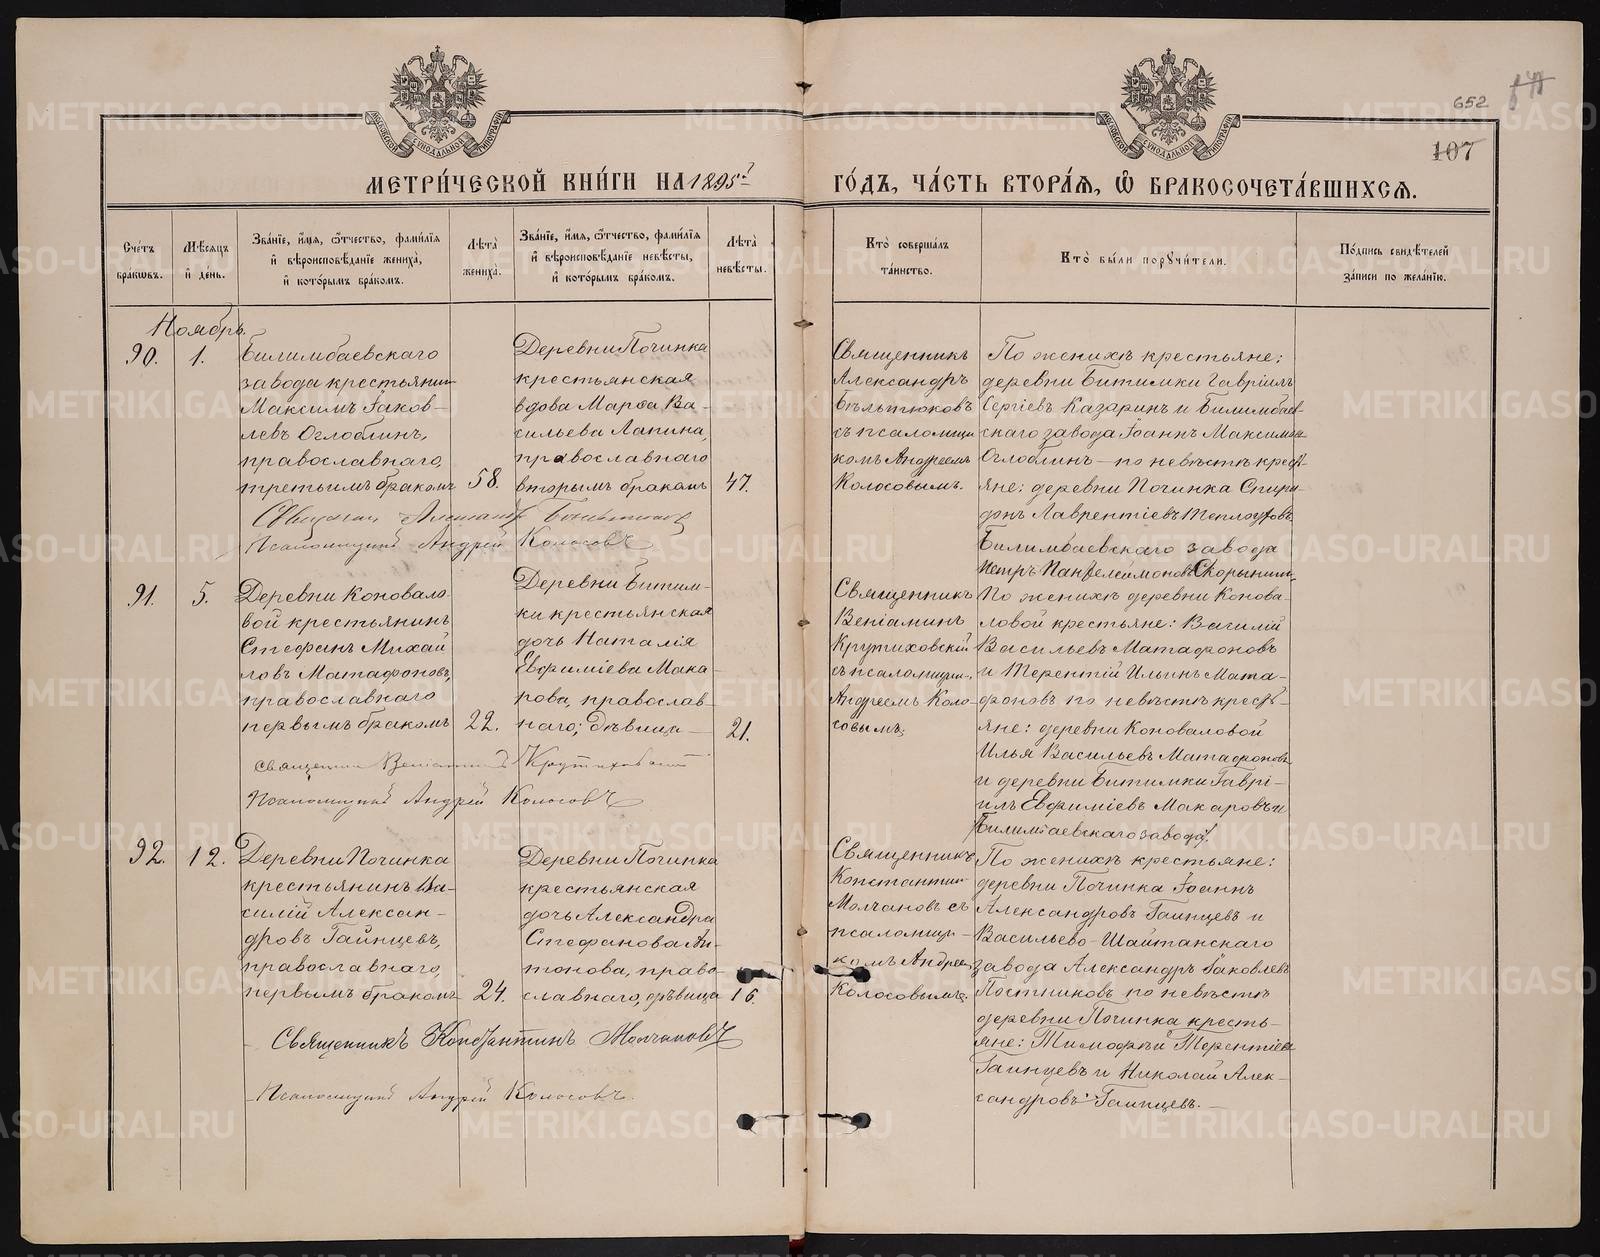 652
107
МЕТРИ́ЧЕСКОЙ КНИ́ГИ НА 1895й ГО́ДЪ, ЧА́СТЬ ВТОРА́Я, Ѿ БРАКОСОЧЕТА́ВШИХСЯ.
Сче́тъ
бра́ковъ.
Мѣ́сяцъ
и҆ де́нь.
Зва́нїе, и҆́мя, ѻ҆́тчество, фами́лїя
и҆ вѣроисповѣ́данїе жениха̀,
и҆ кото́рымъ бра́комъ.
Лѣ́та
жениха̀.
Зва́нїе, и҆́мя, ѻ҆́тчество, фами́лїя
и҆ вѣроисповѣ́данїе невѣ́сты,
и҆ кото́рымъ бра́комъ.
Лѣ́та
невѣ́сты.
Кто̀ соверша́лъ
та́инство.
Кто̀ бы́ли порꙋчи́тели.
По́дпись свидѣ́телей
за́писи по жела́нїю.
Ноябрь.
90.
1.
Билимбаевскаго
завода крестьянин
Максимъ Іаков-
левъ Оглоблинъ,
православнаго,
третьимъ бракомъ
58.
Деревни Починка
крестьянская
вдова Марѳа Ва-
сильева Лапина,
православнаго
вторымъ бракомъ
47.
Священникъ
Александръ
Бѣльтюковъ
съ псаломщи
комъ Андреемъ
Колосовымъ.
По женихѣ крестьяне:
деревни Битимки Гавріилъ
Сергіевъ Казаринъ и Билимбаев-
скаго завода Іоаннъ Максимов
Оглоблинъ — по невѣстѣ кресть-
яне: деревни Починка Спири-
донъ Лаврентіевъ Теплоуховъ,
Билимбаевскаго завода
Петръ Пантелеймоновъ Скорынинъ
Священникъ Александр Бѣльтюковъ
Псаломщикъ Андрей Колосовъ
91.
5.
Деревни Коновало-
вой крестьянинъ
Стефанъ Михаи
ловъ Матафоновъ,
православнаго
первымъ бракомъ
22.
Деревни Битим-
ки крестьянская
дочь Наталія
Евфиміева Мака-
рова, православ-
наго; дѣвица —
21.
Священникъ
Веніаминъ
Крутиховскій
съ псаломщик.
Андреемъ Коло-
совымъ;
По женихѣ деревни Конова-
ловой крестьяне: Василій
Васильевъ Матафоновъ
и Терентій Ильинъ Мата-
фоновъ по невѣстѣ кресть-
яне: деревни Коноваловой
Илья Васильевъ Матафоновъ
и деревни Битимки Гаврі-
илъ Евфиміевъ Макаровъ и
Билимбаевскаго завода/.
священникъ Веніаминъ Крутиховский
Псаломщикъ Андрей Колосовъ
92.
12.
Деревни Починка
крестьянинъ Ва-
силій Алексан-
дровъ Гаинцевъ,
православнаго,
первымъ бракомъ
24.
Деревни Починка
крестьянская
дочь Александра
Стефанова Ан-
тонова, право-
славнаго, дѣвица
16.
Священникъ
Константин
Молчановъ съ
псаломщи-
комъ Андрее
Колосовымъ.
По женихѣ крестьяне:
деревни Починка Іоаннъ
Александровъ Гаинцевъ и
Васильево-Шайтанскаго
завода Александръ Іаковлевъ
Постниковъ по невѣстѣ
деревни Починка кресть-
яне: Тимофѣй Терентіев
Гаинцевъ и Николай Алек-
сандровъ Гаинцевъ. —
Священникъ Константинъ Молчановъ
Псаломщикъ Андрей Колосовъ.